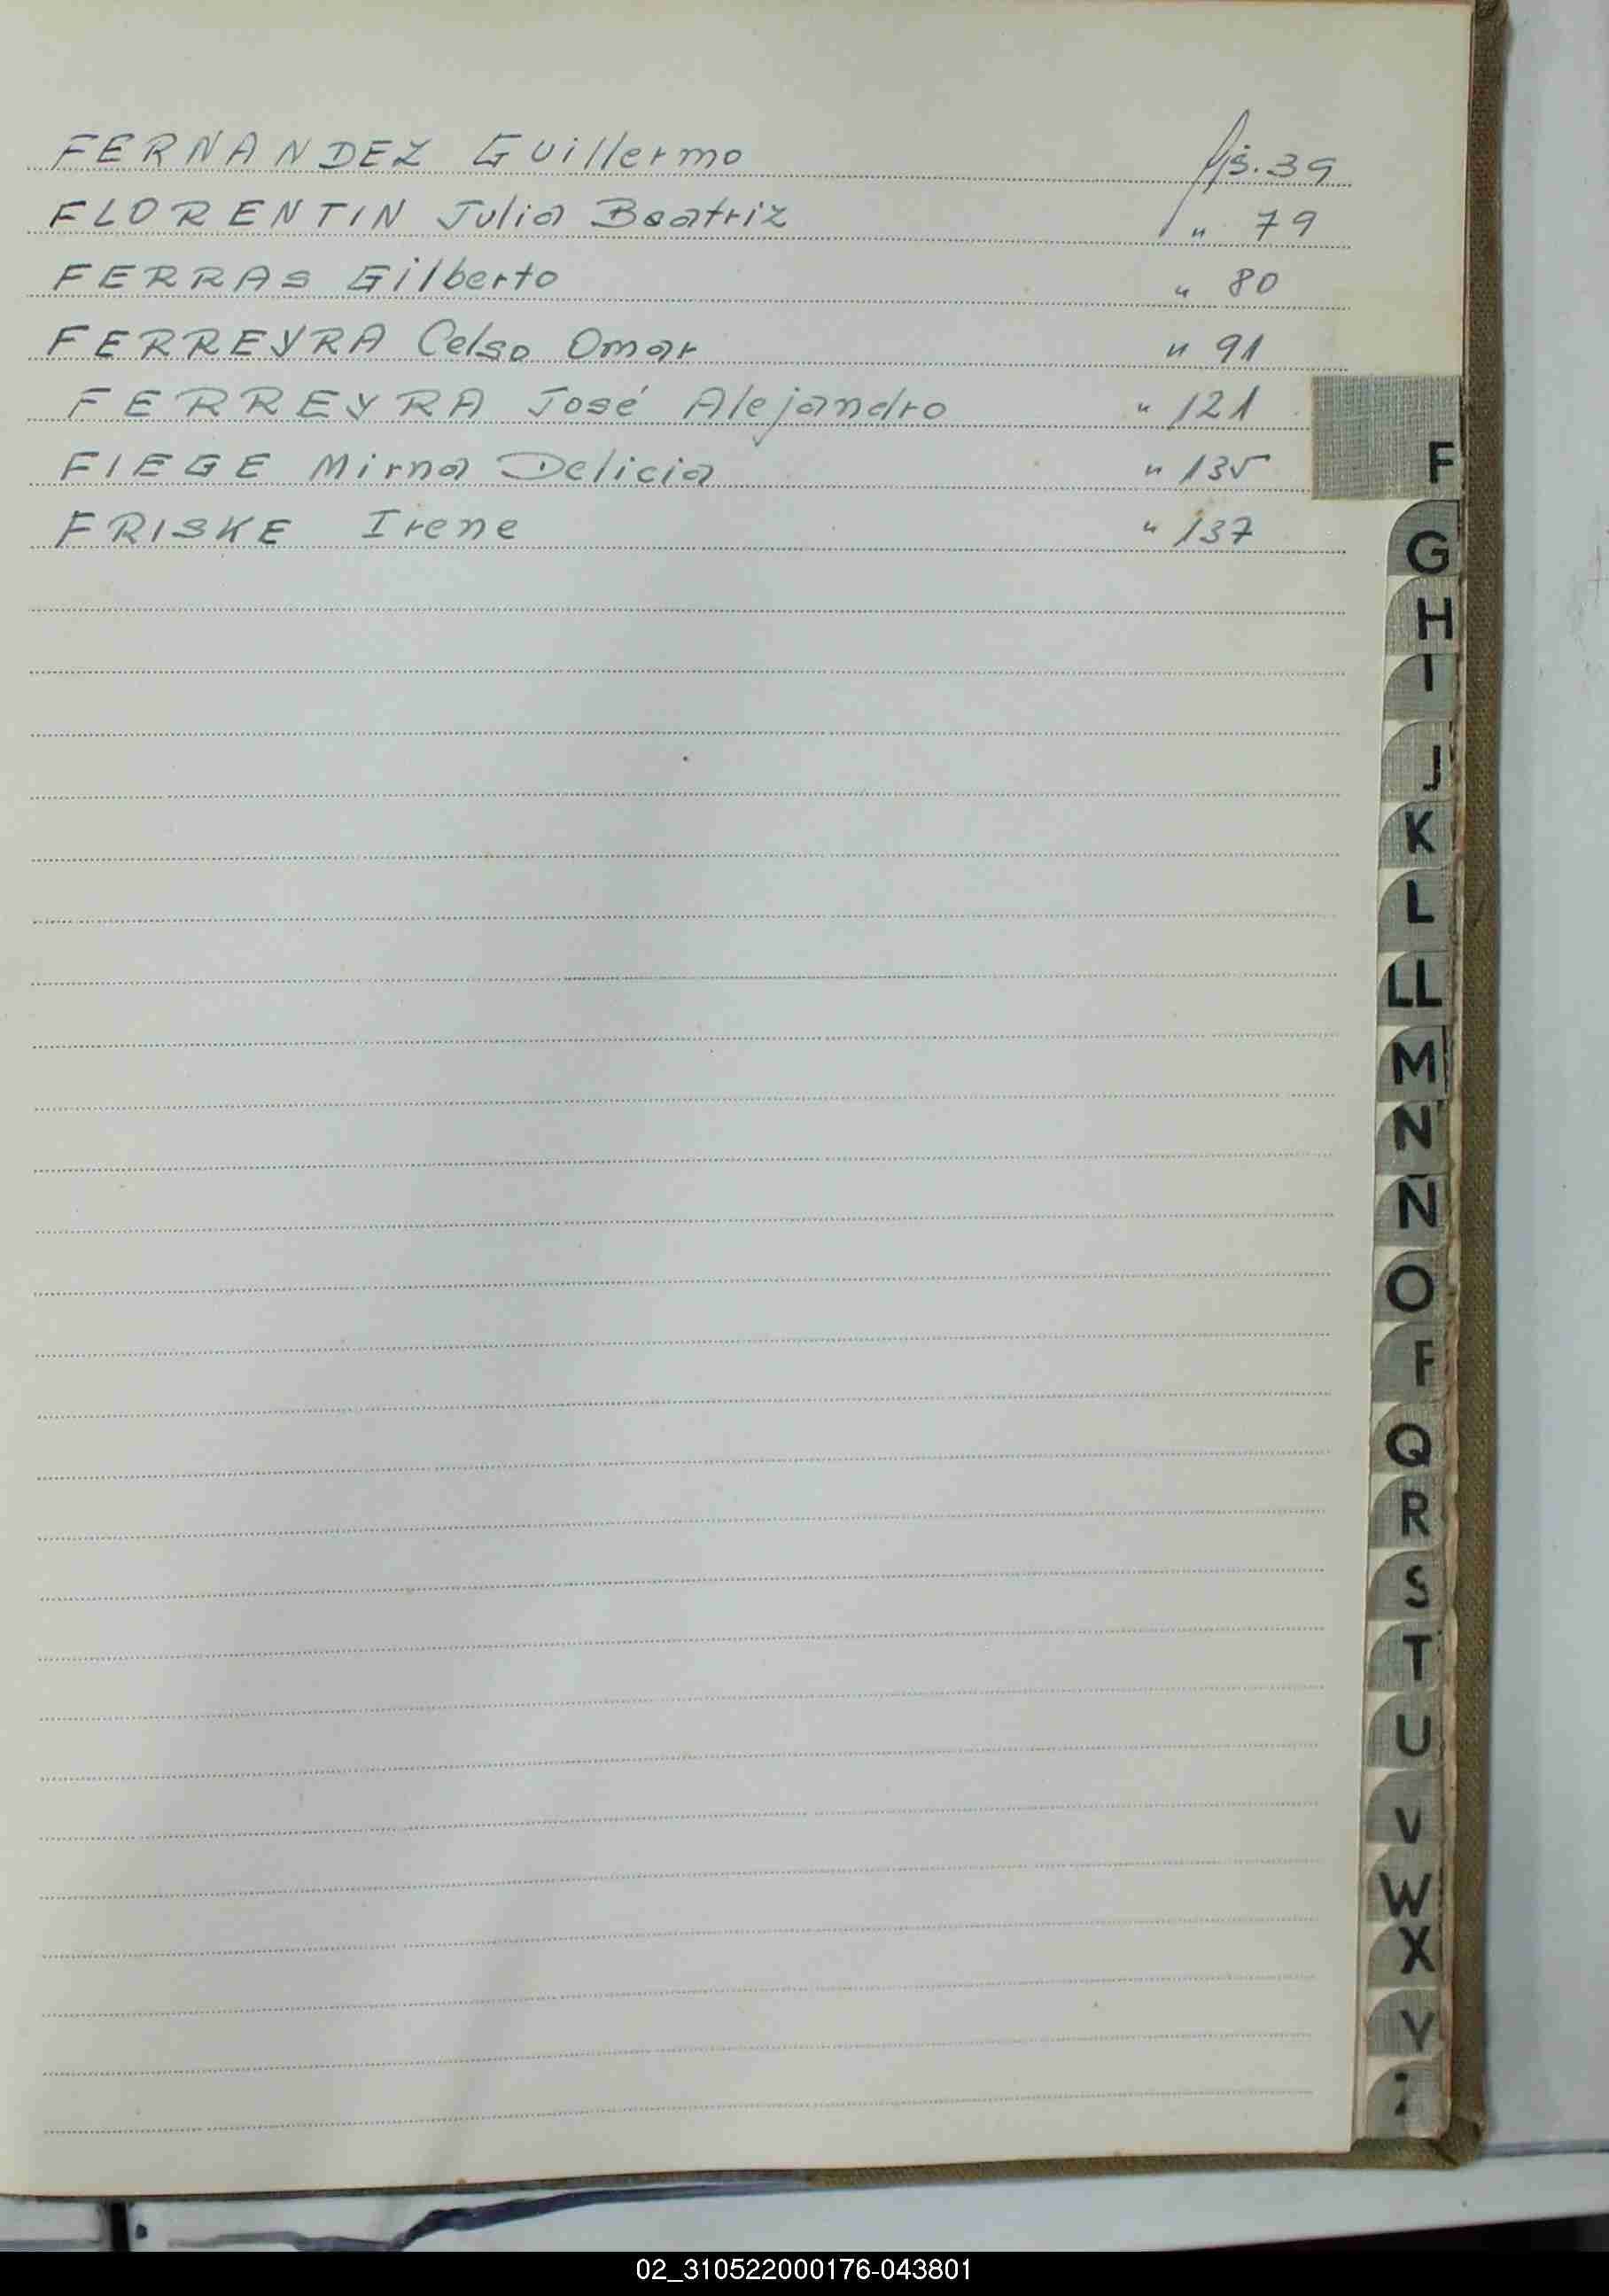 FERNANDEZ Guillermo fjs. 39
FLORENTIN Julia Beatriz " 79
FERRAS Gilberto " 80
FERREYRA Celso Omar " 91
FERREYRA José Alejandro " 121
FIEGE Mirna Delicia " 135
FRISKE Irene " 137
F
G
H
I
J
K
L
LL
M
N
N
O
P
Q
R
S
T
U
V
W
X
Y
Z
02_310522000176-043801